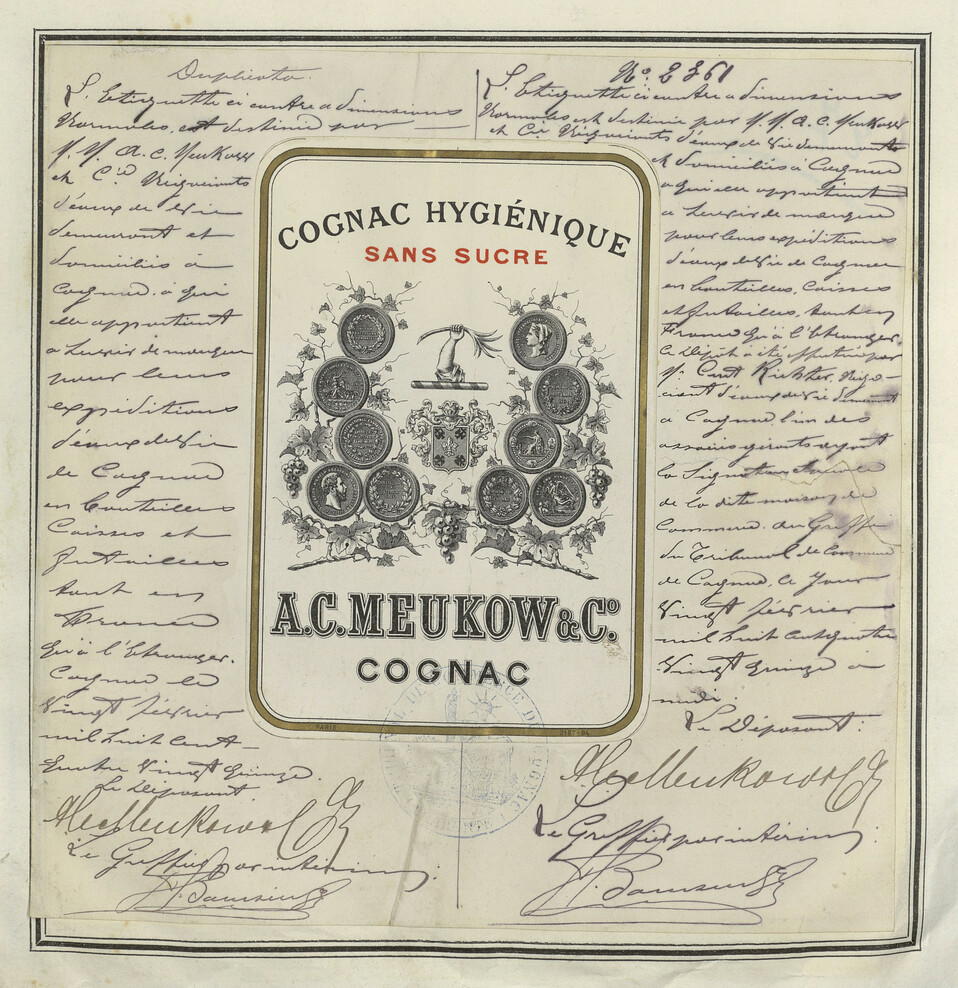 Duplicata.
L'Etiquette ci contre a dimensions
Normales est destinée par
M. M. A. C. Meukow
et Cie Négociants
d'eaux de Vie
demeurant et
domiciliés à
Cognac, à qui
elle appartient
a Servir de marque
pour leurs
expéditions
d'eaux de Vie
de Cognac
en bouteilles
Caisses et
futailles
tant en
France
qu'à l'Etranger.
Cognac le
Vingt février
mil huit cent
quatre Vingt quinze.
Le Déposant
A C Meukow & Co
Le Greffier par intérim:
No. 2361
L'Etiquette ci contre a dimensions
Normales est destinée par M. M. A. C. Meukow
et Cie Négociants d'eaux de Vie demeurant
et domiciliés à Cognac
a qui elle appartient
a Servir de marque
pour leurs expéditions
d'eaux de Vie de Cognac
en bouteilles, Caisses
et futailles, tant en
France qu'à l'Etranger.
Ce Dépôt a été effectué par
M. Richter, Négo-
ciant d'eaux de Vie demeurant
a Cognac l'un des
associés gérants ayant
la Signature Sociale
de la dite maison de
Commerce. au Greffe
du Tribunal de Commerce
de Cognac, le Jour
Vingt février
mil huit cent quatre
Vingt quinze à
midi.
Le Déposant:
A C Meukow & Co
Le Greffier par intérim:
COGNAC HYGIÉNIQUE
SANS SUCRE
A.C. MEUKOW & Co.
COGNAC
PARIS